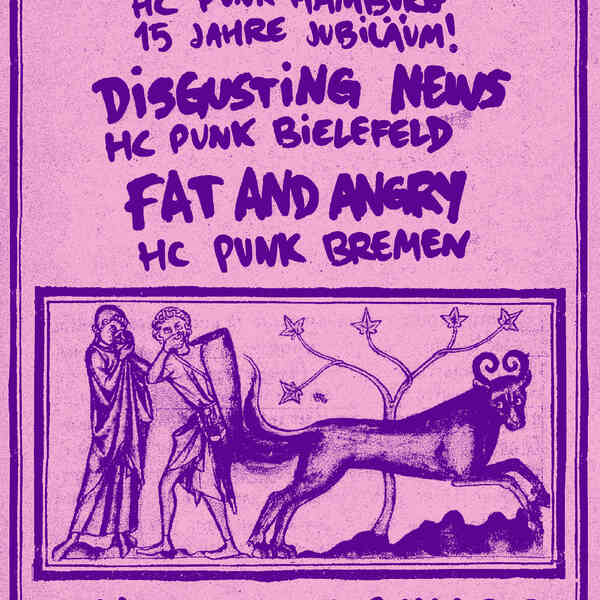 HC PUNK HAMBURG
15 JAHRE JUBiLÄUM!
DiSGUSTiNG NEWS
HC PUNK BiELEFELD
FAT AND ANGRY
HC PUNK BREMEN